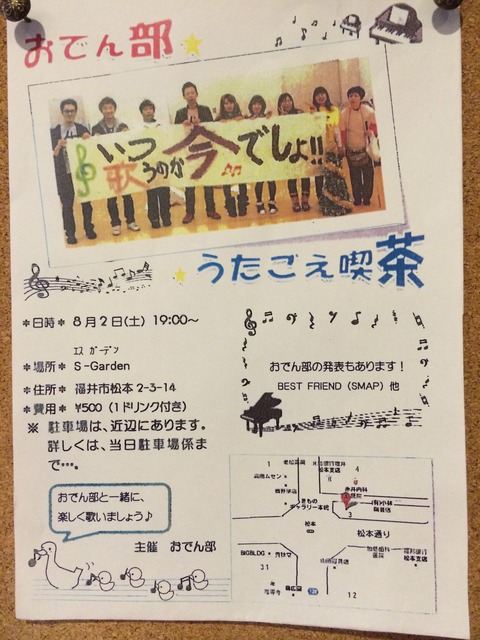 おでん部
いつ
歌うのか
今でしょ!!
うたごえ喫茶
＊日時＊ 8月2日(土) 19:00～
エス ガーデン
＊場所＊ S-Garden
＊住所＊ 福井市松本2-3-14
＊費用＊ ¥500 (1ドリンク付き)
※ 駐車場は、近辺にあります。
詳しくは、当日駐車場係ま
で…。
おでん部の発表もあります！
BEST FRIEND (SMAP) 他
おでん部と一緒に、
楽しく歌いましょう♪
主催 おでん部
1
4
松本支店
きもの
3
松本
松本通り
BIGBLDG
31
12